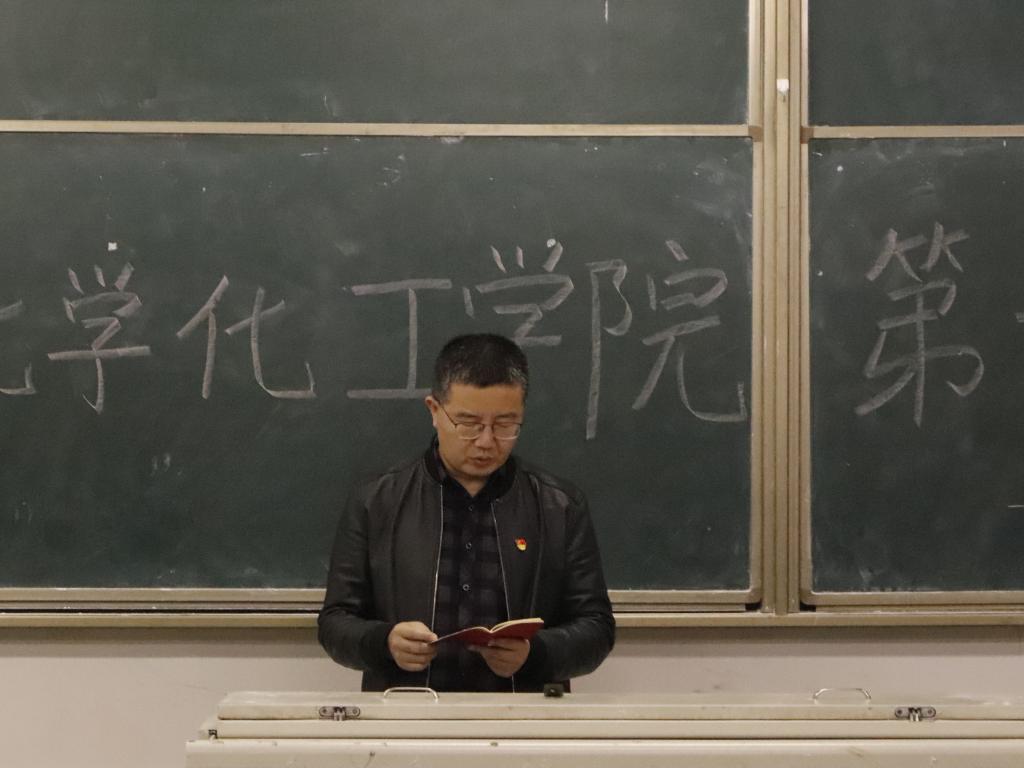 学化工学院 第